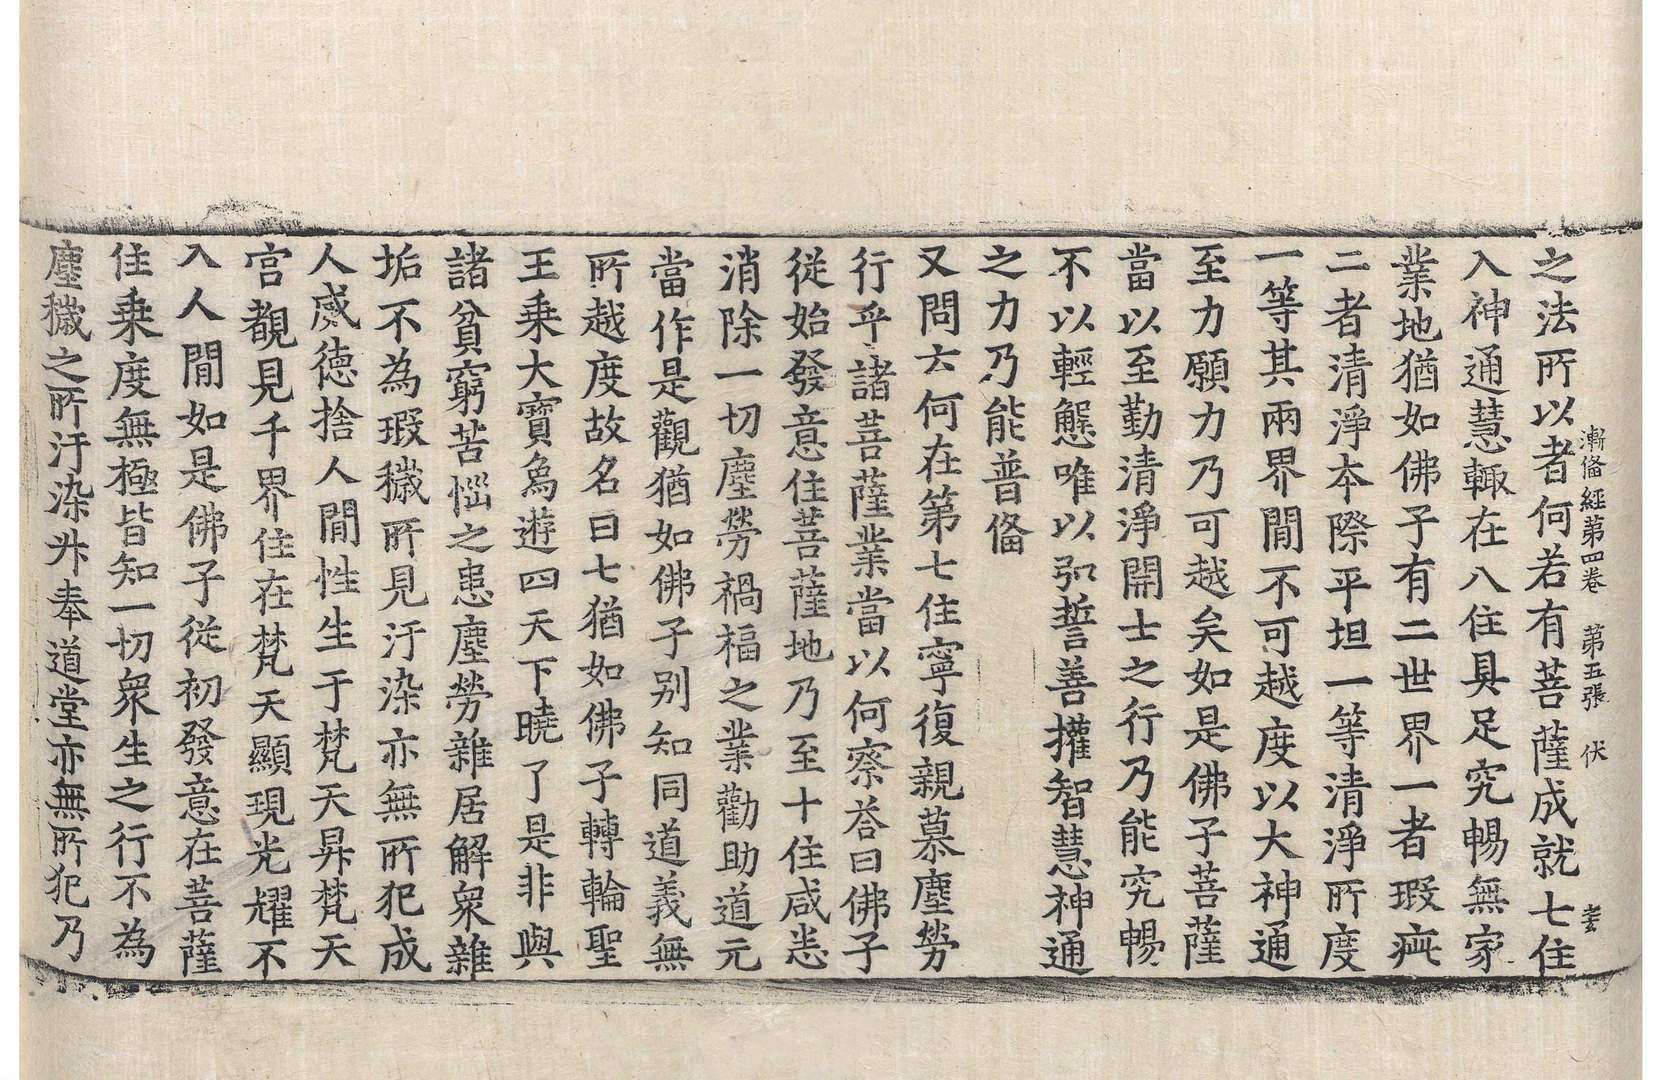 漸俻經第四卷　第五張　伏
之法所以者何若有菩薩成就七住
入神通慧輙在八住具足究暢無家
業地猶如佛子有二世界一者瑕疵
二者清淨本際平坦一等清淨所度
一等其兩界閒不可越度以大神通
至力願力乃可越矣如是佛子菩薩
當以至勤清淨開士之行乃能究暢
不以輕態唯以弘誓善權智慧神通
之力乃能普俻
又問云何在第七住寧復親慕塵勞
行乎諸菩薩業當以何察荅曰佛子
從始發意住菩薩地乃至十住咸恙
消除一切塵勞禍福之業勸助道元
當作是觀猶如佛子别知同道義無
所越度故名曰七猶如佛子轉輪聖
王乗大寶象遊四天下曉了是非與
諸貧窮苦惱之患塵勞雜居解衆雜
垢不為瑕穢所見汙染亦無所犯成
人威德捨人閒性生于梵天昇梵天
宫觀見千界住在梵天顯現光耀不
入人閒如是佛子從初發意在菩薩
住乗度無極皆知一切衆生之行不為
塵穢之所汙染升奉道堂亦無所犯乃